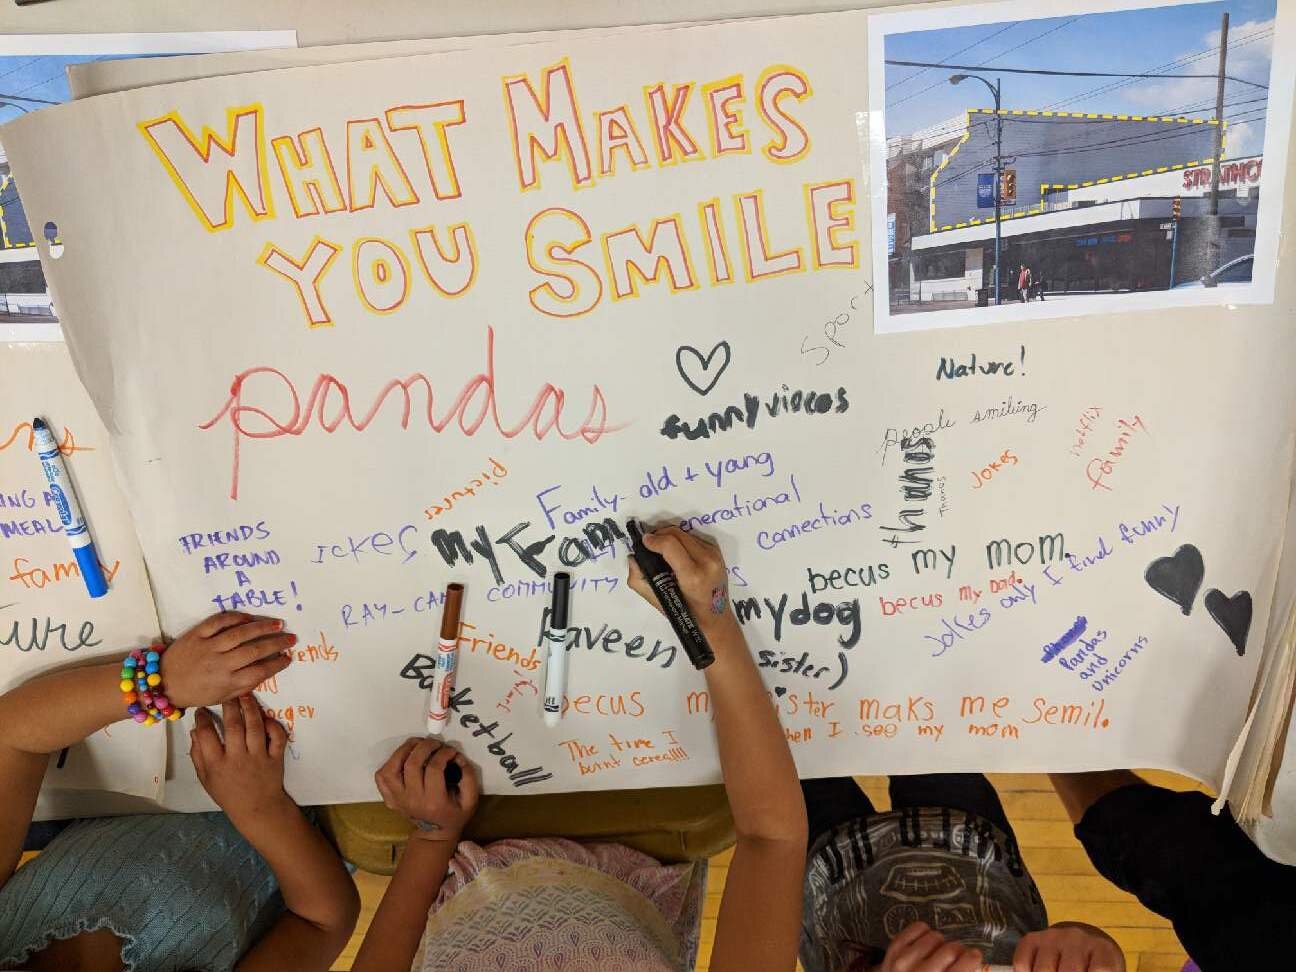 WHAT MAKES
YOU SMILE
STRATHCO
pandas
funny videos
Sport
Nature!
people smiling
thanos
Thanos
JOKES
netflix
family
pictures
Family- old + young
generational
connections
FRIENDS
AROUND
A
TABLE!
my Fam
COMMUNITY
RAY-CAM
becus my mom.
becus my Dad.
Jokes only I find funny
mydog
sister)
Raveen
Friends
Basketball
Pandas
and
Unicorns
becus my sister maks me semil.
when I see my mom
The time I
burnt cereal!!!!
ING A
MEAL
family
ure